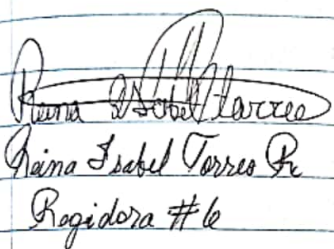 Reina Isabel Torres
Reina Isabel Torres R
Regidora #6